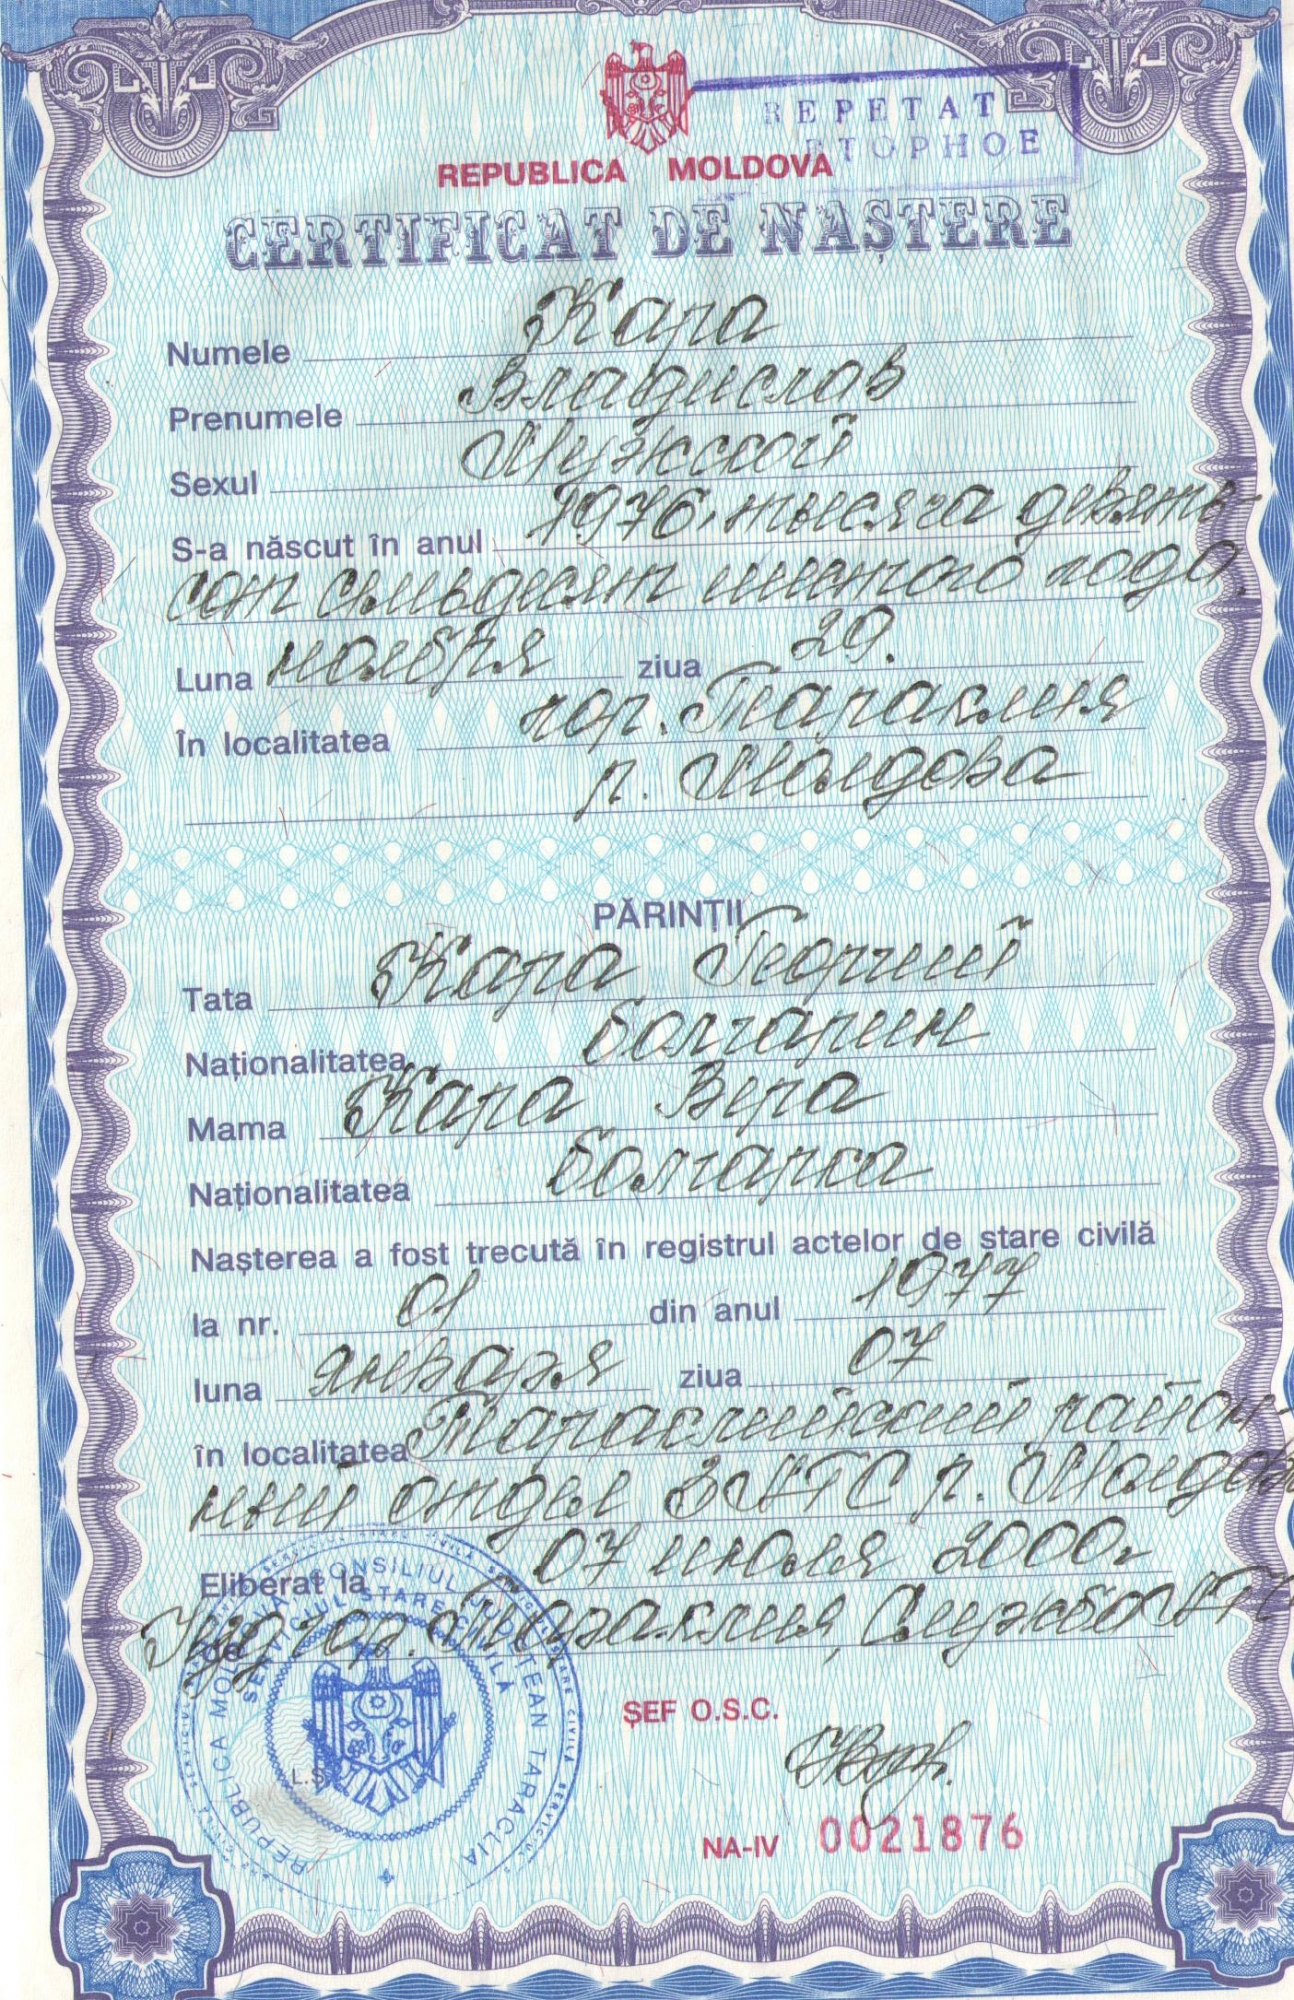 REPETAT
ВТОРНОЕ
REPUBLICA MOLDOVA
CERTIFICAT DE NAȘTERE
Numele Кара
Prenumele Владислав
Sexul Мужской
S-a născut în anul 1976, тысяча девять-
сот семьдесят шестого года,
Luna ноября ziua 29.
În localitatea гор. Тараклия
р. Молдова
PĂRINȚII
Tata Кара Георгий
Naționalitatea болгарин
Mama Кара Вера
Naționalitatea болгарка
Nașterea a fost trecută în registrul actelor de stare civilă
la nr. 01 din anul 1977
luna января ziua 07
în localitatea Тараклийский район-
ный отдел ЗАГС р. Молдова
Eliberat la 07 июля 2000г
Жуд. гор. Тараклия, Служба ЗАГС
REPUBLICA MOLDOVA CONSILIUL JUDEȚEAN TARACLIA
SERVICIUL STARE CIVILĂ
L.Ș.
ȘEF O.S.C.
NA-IV 0021876